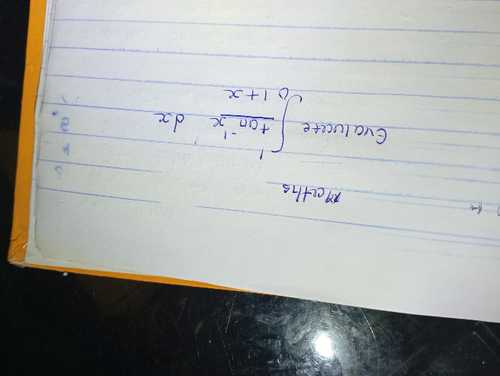 Maths
Evaluate ∫₀¹ tan⁻¹x / 1+x dx